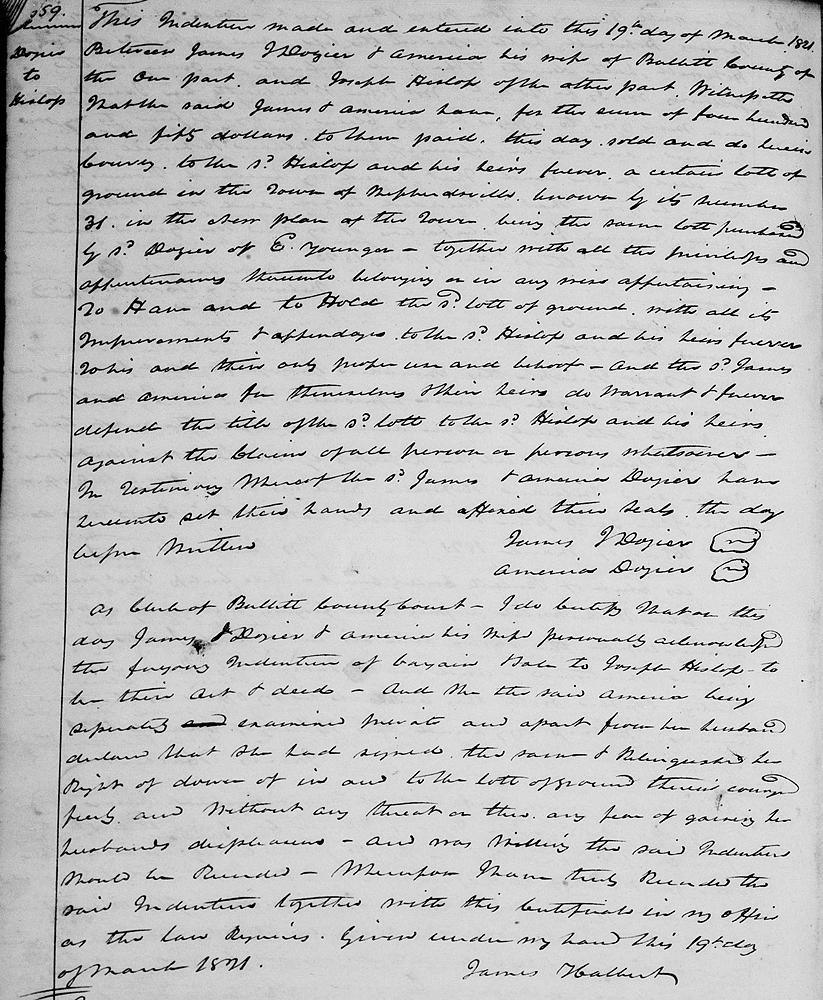 359.
Dozier
to
Hislop
This Indenture made and entered into this 19th day of March 1821.
Between James J Dozier & America his wife of Bullitt County of
the One part. and Joseph Hislop of the other part. Witnesseth
that the said James & America have, for the sum of four hundred
and fifty dollars. to them paid. this day. sold and do herein
Convey. to the sd. Hislop and his heirs forever. a certain lott of
ground in the Town of Shepherdsville. known by its number
31. in the new plan of the Town. being the same lott purchased
by sd. Dozier of E. Younger – together with all the priviledges and
appurtenances thereunto belonging or in any wise appertaining –
To Have and to Hold the sd. lott of ground. with all its
Improvements & appendages. to the sd. Hislop and his heirs forever
to his and their only proper use and behoof – and the sd. James
and America for themselves & their heirs do warrant & forever
defend the title of the sd. lott to the sd. Hislop and his heirs
against the Claim of all person or persons whatsoever –
In Testimony Whereof the sd. James & America Dozier have
hereunto set their hands and affixed their seals. the day
before Written
James J Dozier
America Dozier
As Clerk of Bullitt County Court – I do Certify that on this
day James J Dozier & America his wife personally acknowledged
the foregoing Indenture of bargain & sale to Joseph Hislop to
be their act & deed – And she the said America being
seperately examined private and apart from her husband
declared that she had signed. the same & Relinquished her
Right of dower of in and to the lott of ground therein conveyed
freely and without any threat or thro. any fear of gaining her
husbands displeasure – and was willing the said Indenture
should be Recorded – Whereupon I have truly Recorded the
said Indenture together with this Certificate in my office
as the law Requires. Given under my hand this 19th day
of March 1821.
James Halbert